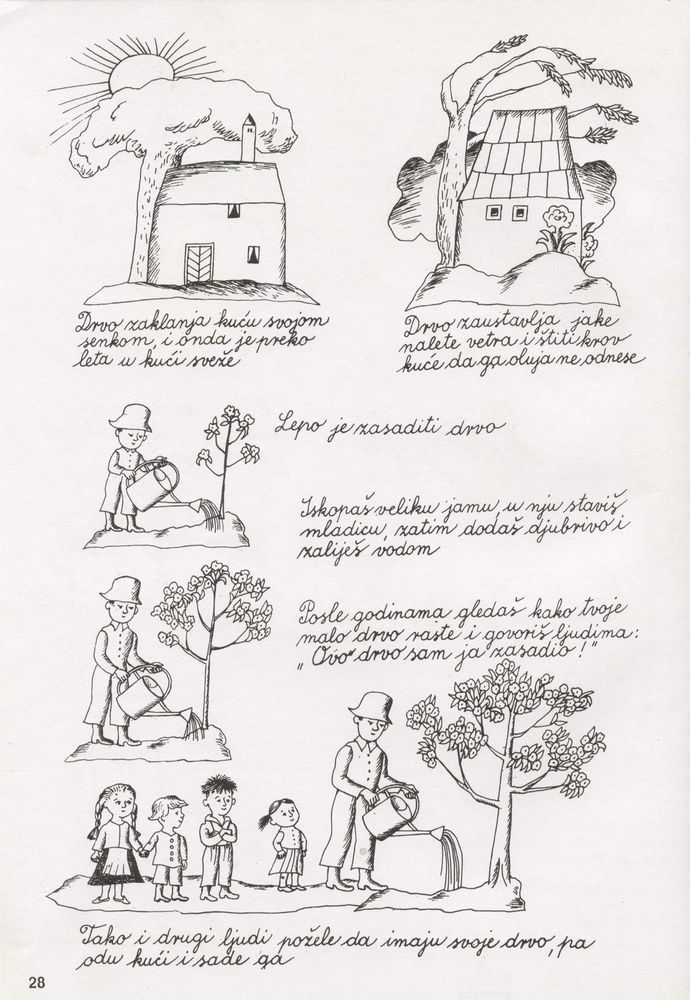 Drvo zaklanja kuću svojom
senkom, i onda je preko
leta u kući sveže
Drvo zaustavlja jake
nalete vetra i štiti krov
kuće da ga oluja ne odnese
Lepo je zasaditi drvo
Iskopaš veliku jamu, u nju staviš
mladicu, zatim dodaš djubrivo i
zaliješ vodom
Posle godinama gledaš kako tvoje
malo drvo raste i govoriš ljudima:
„Ovo drvo sam ja zasadio!"
Tako i drugi ljudi požele da imaju svoje drvo, pa
odu kući i sade ga
28